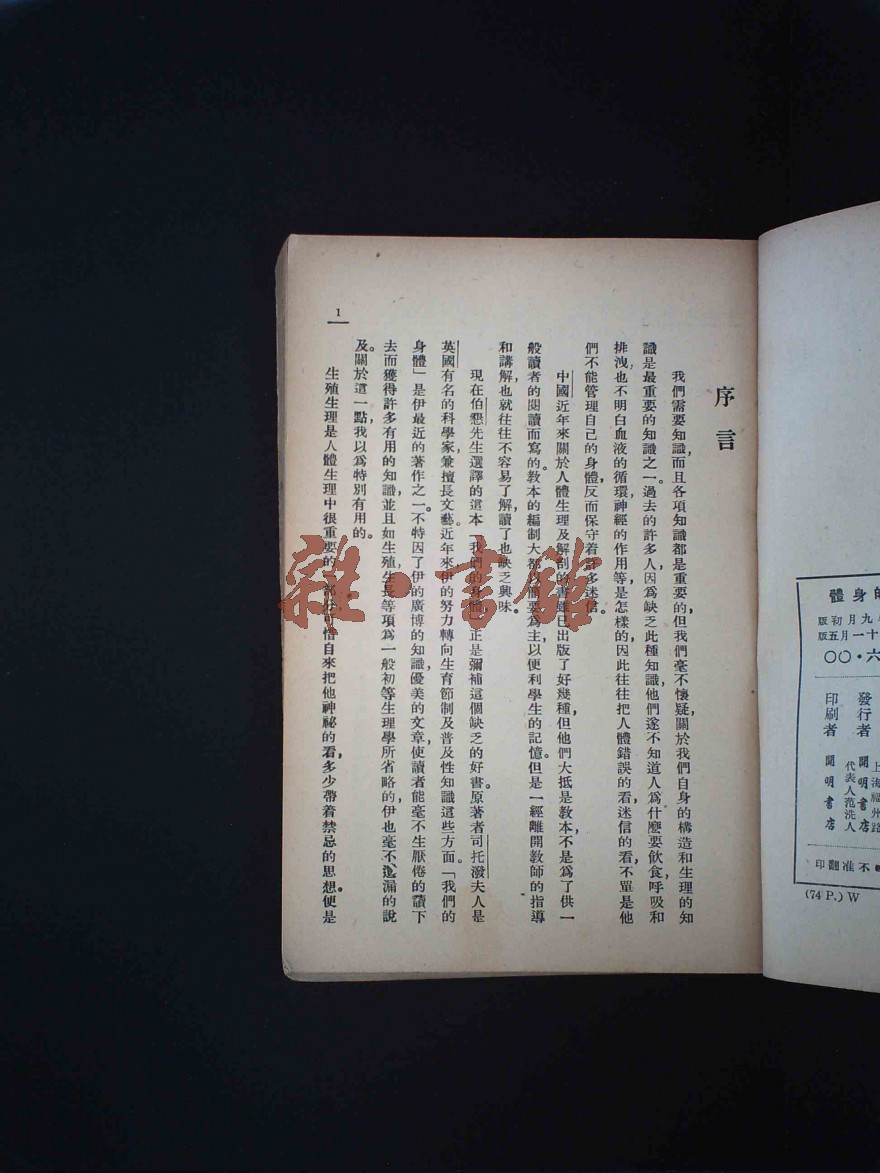 序言
我們需要知識,而且各項知識都是重要的,但我們毫不懷疑,關於我們自身的構造和生理的知
識是最重要的知識之一。過去的許多人,因爲缺乏此種知識,他們遂不知道人爲什麼要飲食,呼吸和
排洩,也不明白血液的循環,神經的作用等,是怎樣的,因此往往把人體錯誤的看,迷信的看,不單是他
們不能管理自己的身體,反而保守着許多迷信。
中國近年來關於人體生理及解剖的書雖已出版了好幾種,但他們大抵是教本,不是爲了供一
般讀者的閱讀而寫的。教本的編制大都以簡要爲主,以便利學生的記憶。但是一經離開教師的指導
和講解,也就往往不容易了解,讀了也缺乏興味。
現在伯懇先生選譯的這本「我們的身體」正是彌補這個缺乏的好書。原著者司托潑夫人是
英國有名的科學家,兼擅長文藝。近年來伊的努力轉向生育節制及普及性知識這些方面。「我們的
身體」是伊最近的著作之一。不特因了伊的廣博的知識,優美的文章,使讀者能毫不生厭倦的讀下
去而獲得許多有用的知識,並且如生殖,生長等項爲一般初等生理學所省略的,伊也毫不遺漏的說
及。關於這一點,我以爲特別有用的。
生殖生理是人體生理中很重要的一部分,可惜自來把他神祕的看,多少帶着禁忌的思想。便是
1
的身體
九月初版
十一月五版
六·〇〇
發行者
開明書店
上海福州路
代表人范洗人
印刷者
開明書店
不准翻印
(74 P.) W
雜·書館